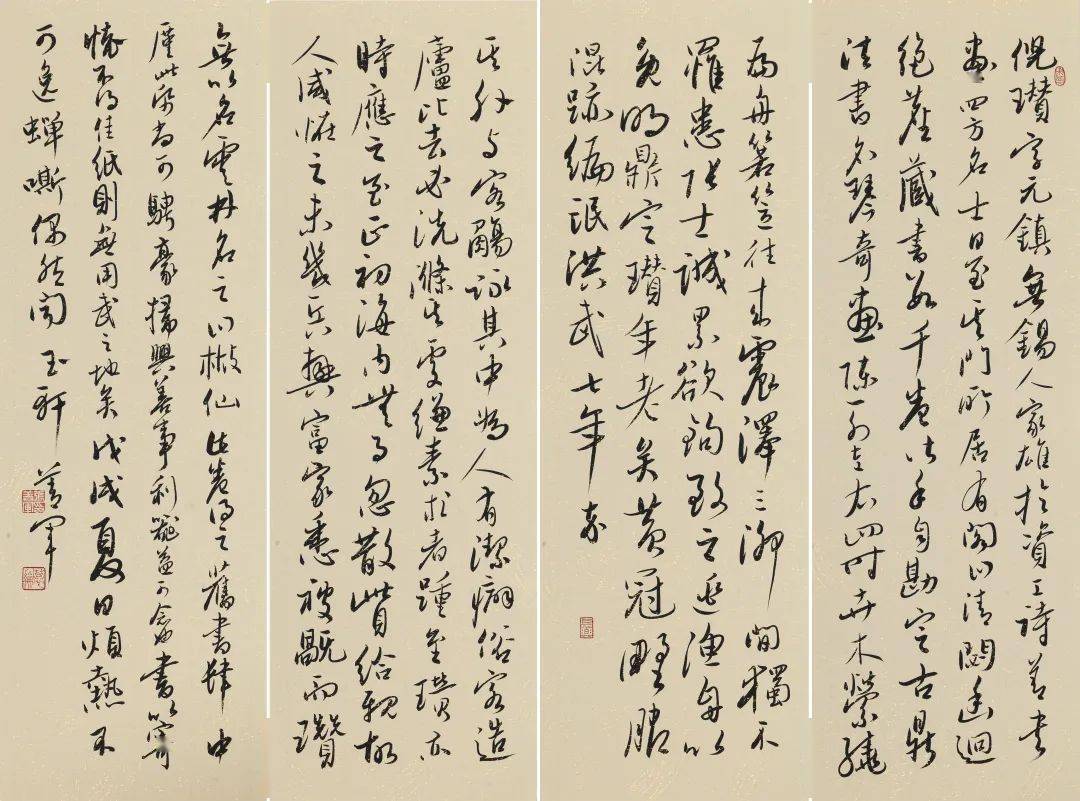 倪瓚字元鎮無錫人家雄於資工詩善書
畫四方名士日至其門所居有閣曰清閟幽迥
絕塵藏書數千卷皆手自勘定古鼎
法書名琴奇畫陳列左右四時卉木縈繞
其外与客觴詠其中為人有潔癖俗客造
廬比去必洗滌其處縑素求者踵至瓚亦
時應之至正初海內無事忽散貲給親故
人咸怪之未幾兵興富家悉被旤而瓚
扁舟箬笠往來震澤三泖間獨不
罹患張士誠累欲鉤致之逃漁舟以
免明鼎定瓚年老矣黃冠野服
混跡編氓洪武七年卒
無以名雲林名之曰散仙此卷得之舊書肆中
此筆尚可騁豪掃興善事利器並可書以寄
懷不得佳紙則無用武之地矣戊戌夏日煩熱不
可逸蟬嘶偶然聞玉軒善軍